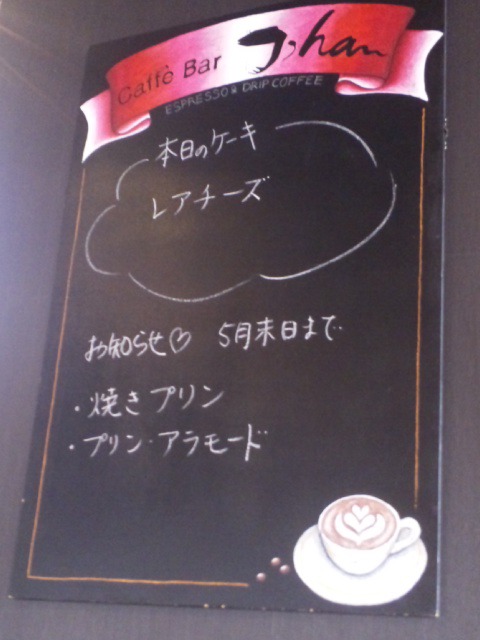 Caffè Bar
ESPRESSO & DRIP COFFEE
本日のケーキ
レアチーズ
お知らせ♡ 5月末日まで
・焼きプリン
・プリン・アラモード